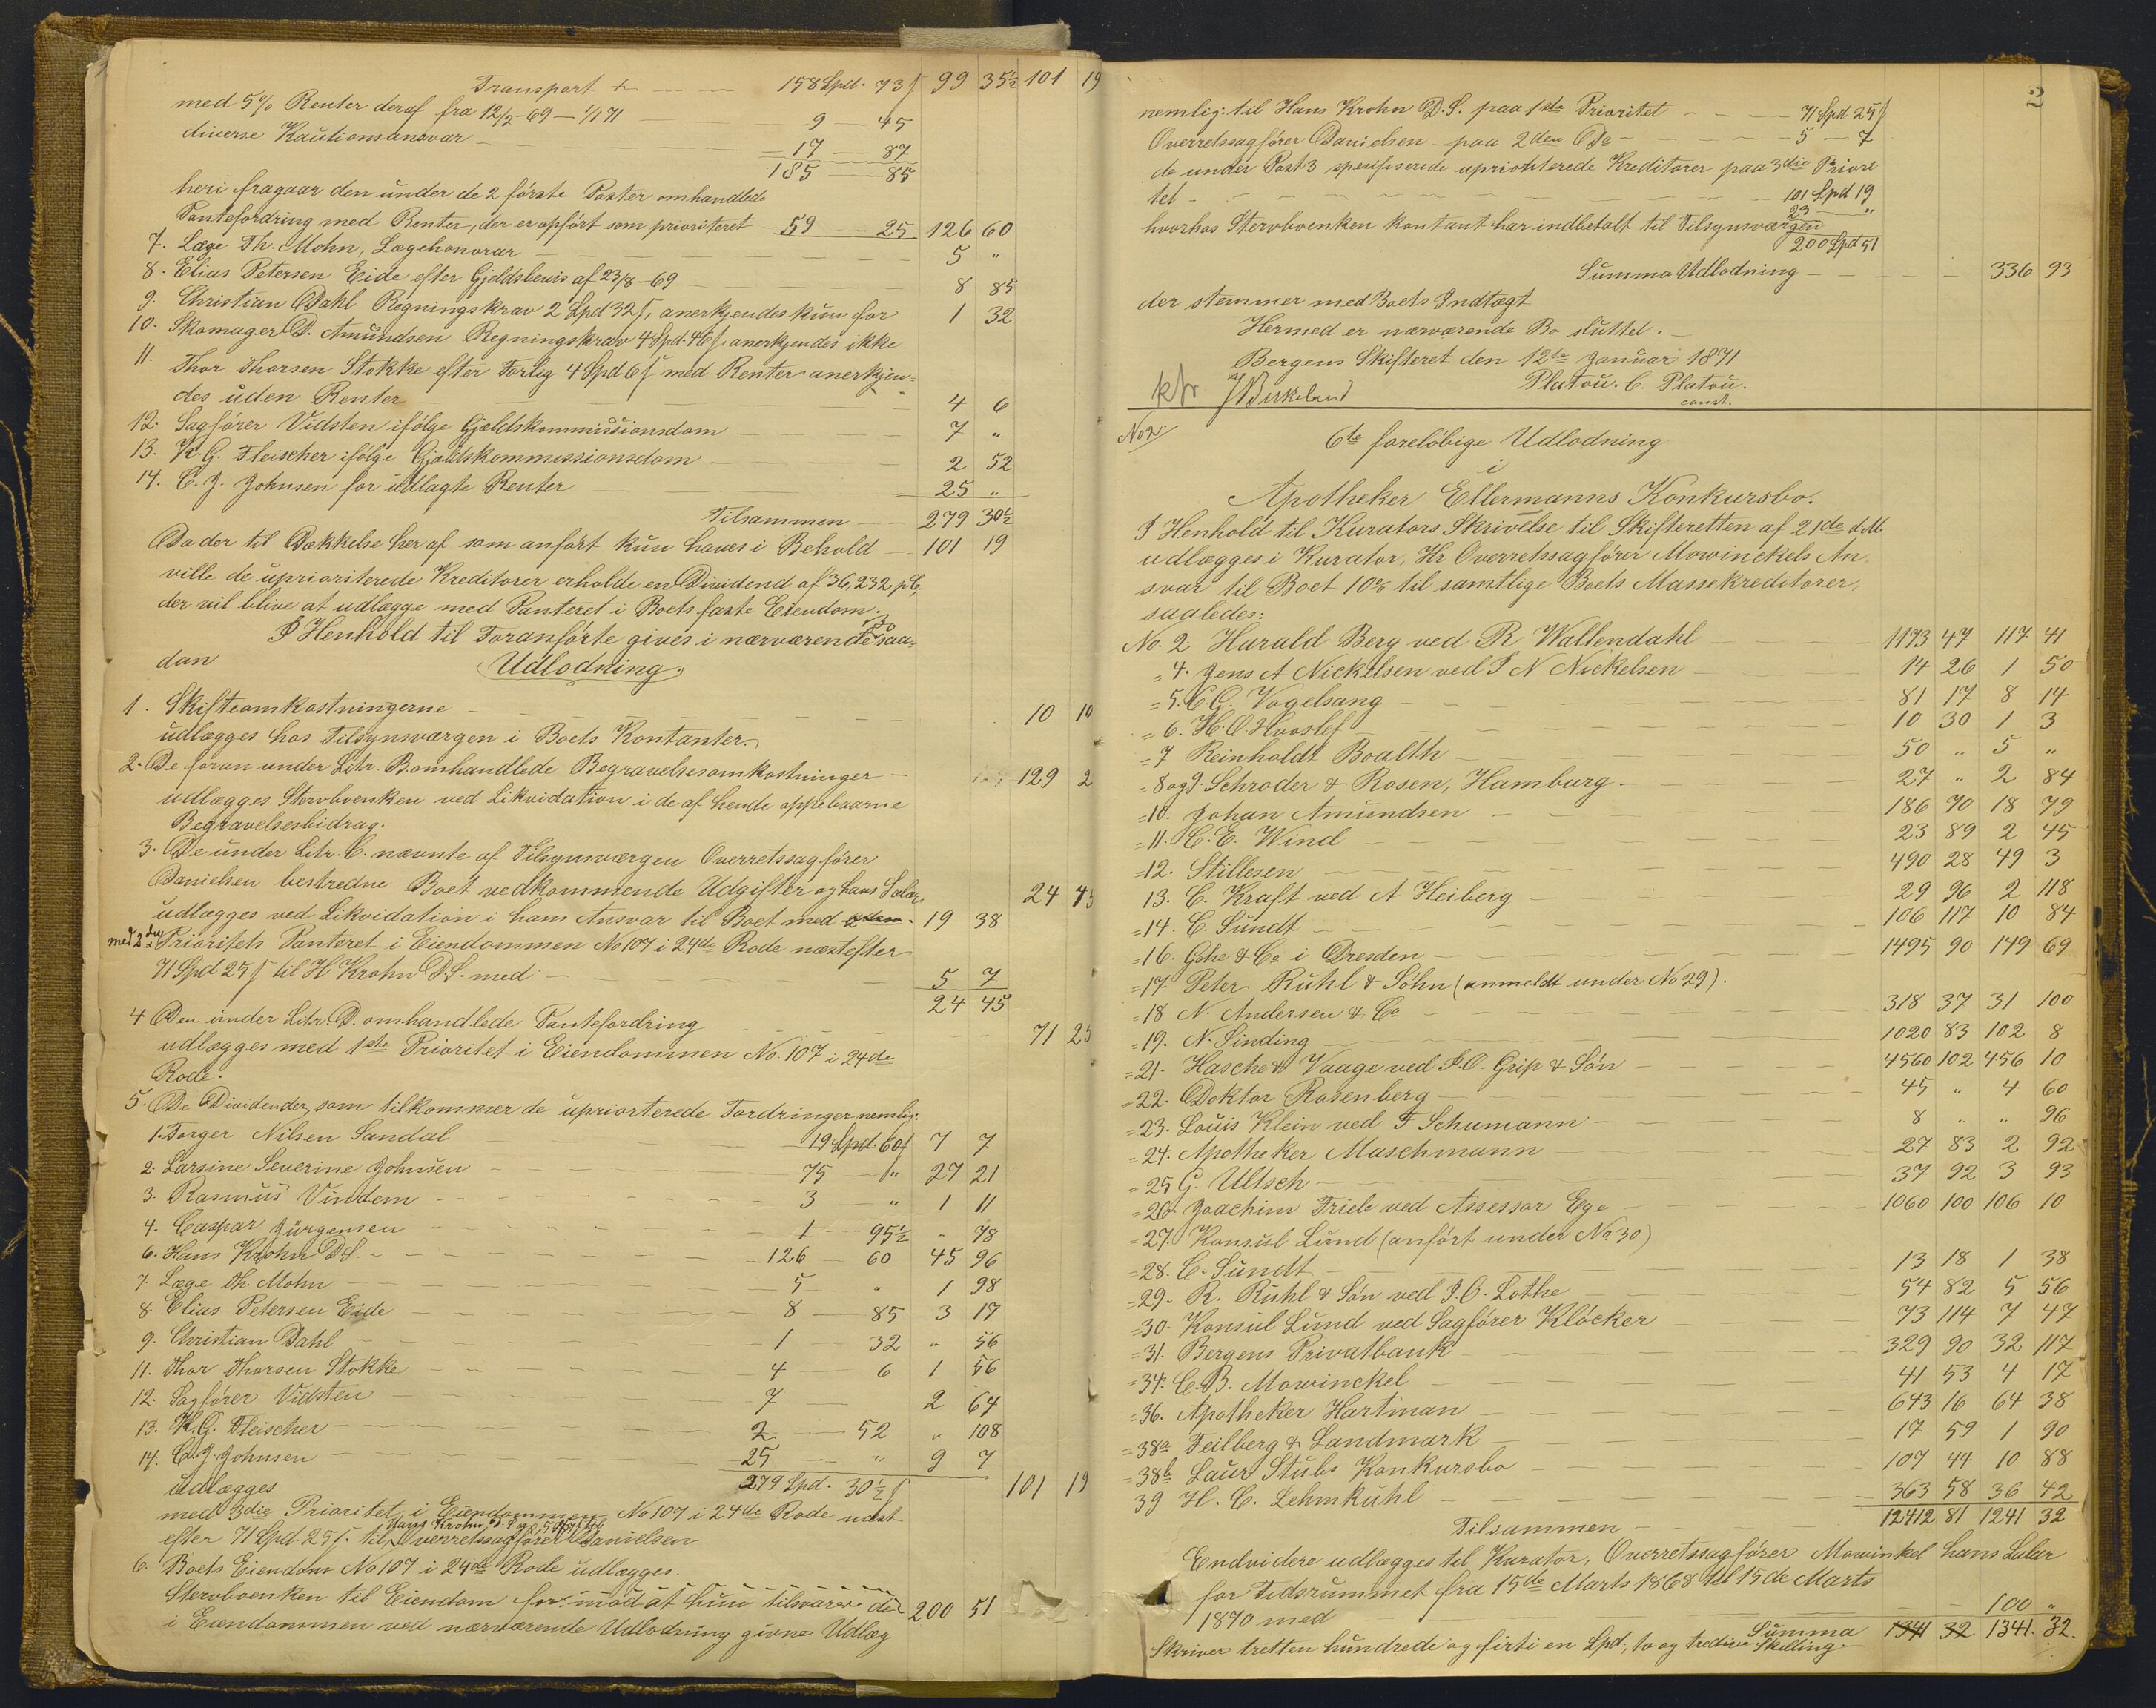 Transport + — — 158 Spd. 73 ʃ 99 35½ 101 19
med 5% Renter deraf fra 12/2-69 — 1/1 71 — 9 — 45
diverse Kautionsansvar — 17 — 87
185 — 85
heri fragaar den under de 2 förste Poster omhandlede
Pantefordring med Renter, der er opfört som prioriteret — 59 — 25 126 60
7. Læge Th. Mohn, Lægehonorar — 5 "
8. Elias Petersen Eide efter Gjeldsbevis af 23/8-69 — 8 85
9. Christian Dahl Regningskrav 2 Spd 32 ʃ, anerkjendes kun for 1 32
10. Skomager D. Amundsen Regningskrav 4 Spd. 46 ʃ. anerkjendes ikke
11. Thor Thorsen Stokke efter Forlig 4 Spd 6 ʃ med Renter anerkjen-
des uden Renter — 4 6
12. Sagförer Vidsten ifölge Gjældskommissionsdom — 7 "
13. K. G. Fleischer ifölge Gjældskommissionsdom — 2 52
14. C. J. Johnsen for udlagte Renter — 25 "
Tilsammen — 279 30½
Da der til Dækkelse heraf som anfört kun haves i Behold — 101 19
ville de uprioriterede Kreditorer erholde en Dividend af 36,232 pC.
der vil blive at udlægge med Panteret i Boets faste Eiendom.
I Henhold til Foranförte gives i nærværende Bo saa-
dan Udlodning.
1. Skifteomkostningerne — 10 10
udlægges hos Tilsynsværgen i Boets Kontanter.
2. De foran under Litr. B. omhandlede Begravelsesomkostninger — 129 2
udlægges Stervboenken ved Likvidation i de af hende oppebaarne
Begravelsesbidrag.
3. De under Litr. C. nævnte af Tilsynsværgen Overretssagförer
Danielsen bestredne Boet vedkommende Udgifter og hans Salær 24 45
udlægges ved Likvidation i hans Ansvar til Boet med 19 38
med 2den Prioritets Panteret i Eiendommen No 107 i 24de Rode næstefter
71 Spd 25 ʃ til H Krohn D.S. med — 5 7
24 45
4 Den under Litr. D. omhandlede Pantefordring — 71 25
udlægges med 1ste Prioritet i Eiendommen No. 107 i 24de
Rode.
5. De Dividender, som tilkommer de upriorterede Fordringer nemlig:
1. Torger Nilsen Sandal 19 Spd. 60 ʃ 7 7
2. Larsine Severine Johnsen — 75 — " 27 21
3. Rasmus Vindem — 3 " 1 11
4. Caspar Jürgensen — 1 — 95½ " 78
6. Hans Krohn D.S. — 126 — 60 45 96
7. Læge Th. Mohn — 5 — " 1 98
8. Elias Petersen Eide — 8 — 85 3 17
9. Christian Dahl — 1 — 32 " 56
11. Thor Thorsen Stokke — 4 6 1 56
12. Sagförer Vidsten — 7 — 2 64
13. K. G. Fleischer — 2 — 52 " 108
14. C. J. Johnsen — 25 — " 9 7
udlægges 279 Spd. 30½ ʃ 101 19
med 3die Prioritet i Eiendommen No 107 i 24de Rode næst
efter 71 Spd. 25 ʃ. til Hans Krohn D.S. og Overretssagförer Danielsen
6. Boets Eiendom No 107 i 24de Rode udlægges
Stervboenken til Eiendom for: mod at hun tilsvarer de 200 51
i Eiendommen ved nærværende Udlodning givne Udlæg
2
nemlig: til Hans Krohn D.S. paa 1ste Prioritet — 71 Spd 25 ʃ
Overretssagförer Danielsen paa 2den Do — 5 — 7
de under Post 3 spesifiserede uprioriterede Kreditorer paa 3die Priori
tet — 101 Spd 19
23 — "
hvorhos Stervboenken kontant har indbetalt til Tilsynsværgen
200 Spd 51
Summa Udlodning — 336 93
der stemmer med Boets Indtægt
Hermed er nærværende Bo sluttet.
Bergens Skifteret den 12te Januar 1871
Platou. C. Platou.
const.
kfr J Birkeland
No 2.
6te foreløbige Udlodning
i
Apotheker Ellermanns Konkursbo.
I Henhold til Kurators Skrivelse til Skifteretten af 21de d.M.
udlægges i Kurator, Hr Overretssagförer Mowinckels An-
svar til Boet 10% til samtlige Boets Massekreditorer,
saaledes:
No. 2 Harald Berg ved R Wallendahl — 1173 47 117 41
" 4. Jens A Nickelsen ved I N Nickelsen — 14 26 1 50
" 5. C. C. Vogelsang — 81 17 8 14
" 6. H. O. Hvoslef — 10 30 1 3
" 7 Reinholdt Boalth — 50 " 5 "
" 8 og 9. Schroder & Rosen, Hamburg — 27 " 2 84
" 10. Johan Amundsen — 186 70 18 79
" 11. C. E. Wind — 23 89 2 45
" 12. Stillesen — 490 28 49 3
13. C. Kraft ved A Heiberg — 29 96 2 118
" 14. C. Sundt — 106 117 10 84
" 16. Gehe & Co i Dresden — 1495 90 149 69
" 17 Peter Ruhl & Söhn (anmeldt under No 29).
" 18 N. Andersen & Co — 318 37 31 100
" 19. N. Sinding — 1020 83 102 8
" 21. Hasche & Vaage ved I. O. Grip & Sön — 4560 102 456 10
" 22. Doktor Rosenberg — 45 " 4 60
" 23. Louis Klein ved F Schumann — 8 " " 96
" 24. Apotheker Maschmann — 27 83 2 92
" 25 G. Ultsch — 37 92 3 93
" 26. Joachim Friele ved Assessor Ege — 1060 100 106 10
" 27. Konsul Lund (anfört under No 30)
" 28. C. Sundt — 13 18 1 38
" 29. R. Ruhl & Sön ved I. O. Lothe — 54 82 5 56
" 30. Konsul Lund ved Sagförer Klöcker — 73 114 7 47
" 31. Bergens Privatbank — 329 90 32 117
" 34. C. B. Mowinckel — 41 53 4 17
" 36. Apotheker Hartman — 643 16 64 38
" 38a Feilberg & Landmark — 17 59 1 90
" 38b Laur Stubs Konkursbo — 107 44 10 88
39 H. C. Lehmkuhl — 363 58 36 42
Tilsammen — 12412 81 1241 32
Endvidere udlægges til Kurator, Overretssagförer Mowinkel hans Salær
for Tidsrummet fra 15de Marts 1868 til 15de Marts
1870 med — 100 "
Summa 1341 32 1341. 32.
Skriver tretten hundrede og firti en Spd, to og tredive Skilling.